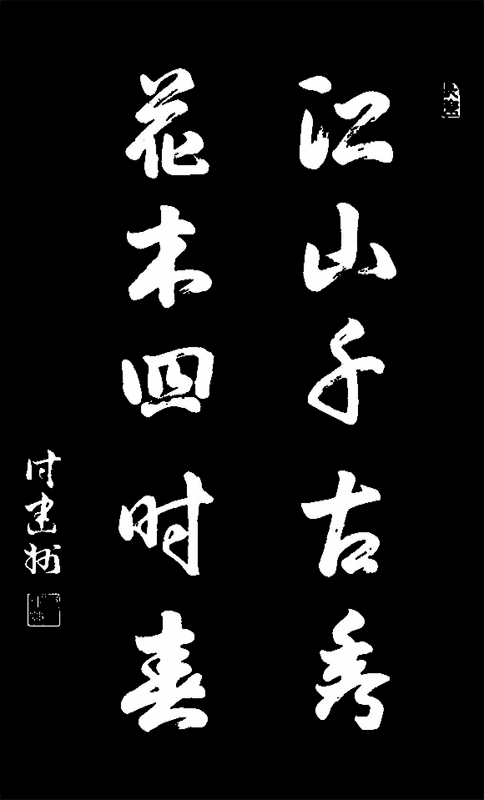 江山千古秀
花木四时春
付建州